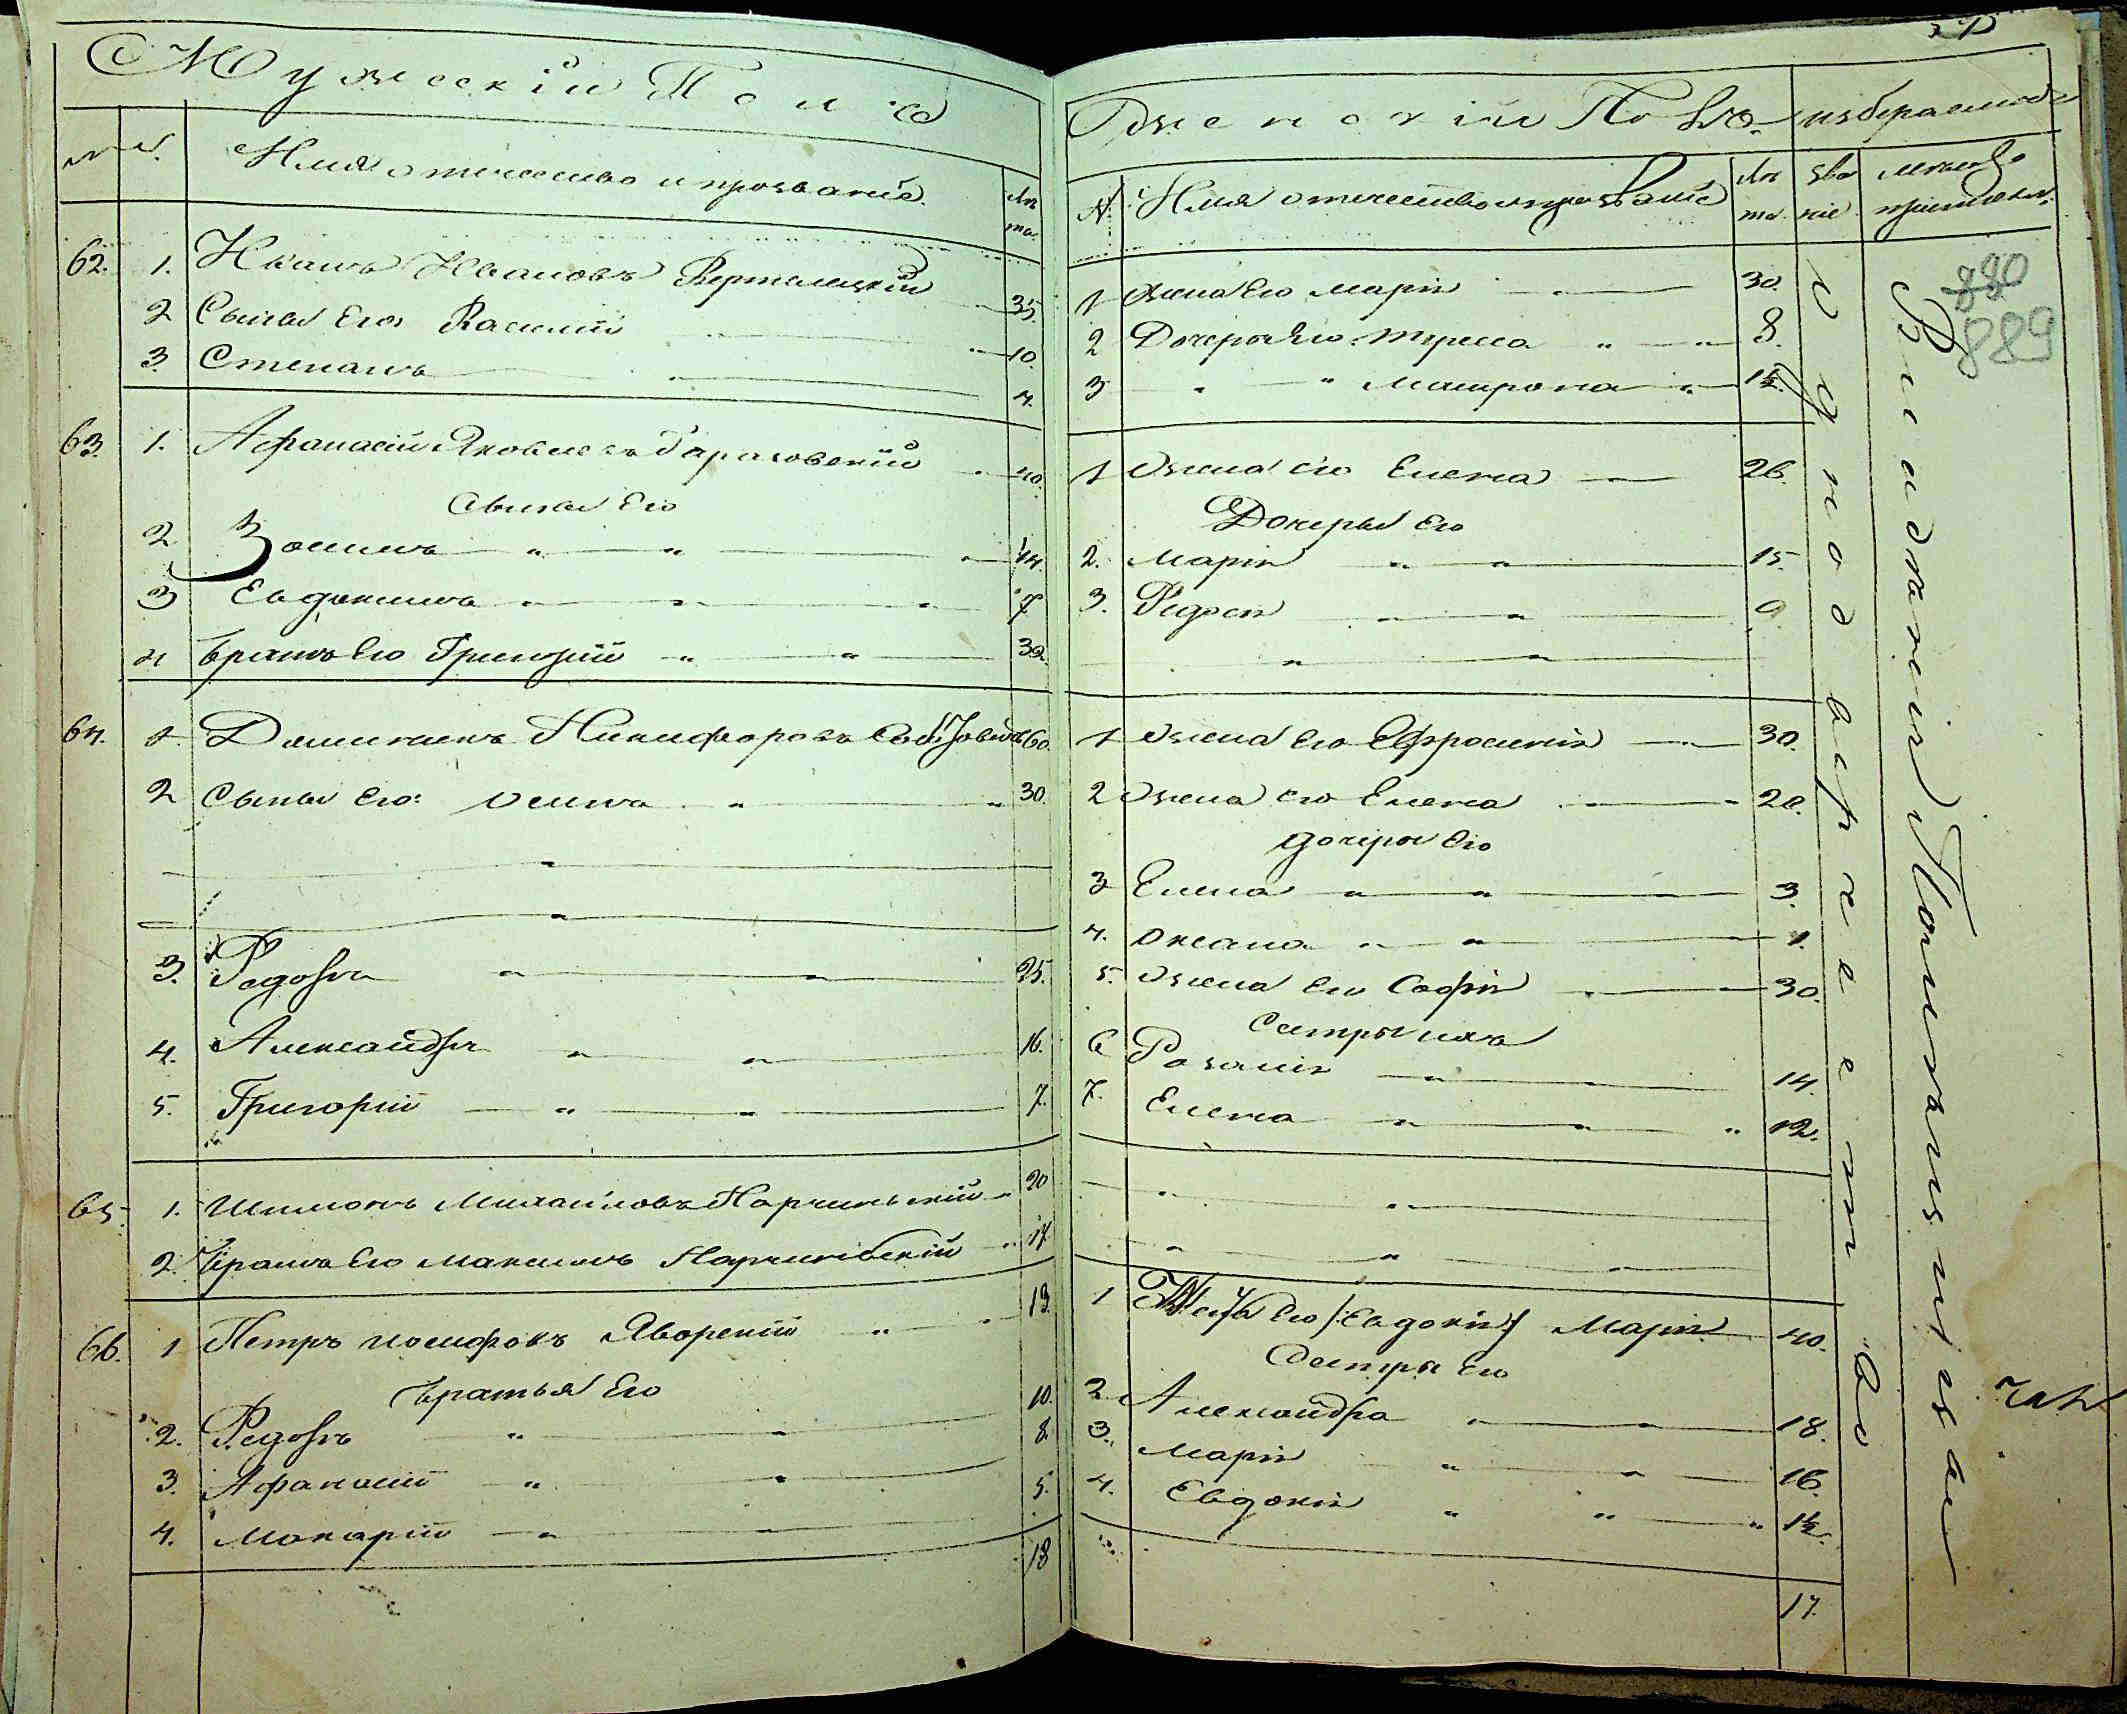 Мужескій Полъ
№ №. Имя отечество и прозваніе. Лѣта.
62. 1. Иванъ Ивановъ Вертелецкій 35.
2 Сыны Его Василій 10.
3. Степанъ 4.
63. 1. Афанасій Яковлевъ 40.
Сыны Его
2 Зосимъ 14.
3 Евдокимъ 7.
4 Братъ Его Григорій 32
64. 1. Доминикъ Никифоровъ 60.
2 Сыны Его: Осипъ 30.
3. Федоръ 25.
4. Александръ 16.
5. Григорій 7.
65. 1. Шимонъ Михайловъ Нарчинскій 20
2. Братъ Его Максимъ Нарчинскій 17.
66. 1 Петръ Иосифовъ Яворскій 19.
Братья Его
2. Федоръ 10.
3. Афанасій 8.
4. Макарій 5.
18
Женскій Полъ. избераемое
№. Имя отечество и прозваніе Лѣта. званіе
1 Жена Его Марія 30.
2 Дочеры Его Тереса 8.
3 Матрона 1½.
1 Жена его Елена 26.
Дочеры Его
2. Марія 15.
3. Федосія 9.
1 Жена Его Ефросинія 30.
2 Жена его Елена 20.
дочеры Его
3 Елена 3.
4. Оксана 1.
5. Жена Его Софія 30.
Сестры ихъ
6 Розалія 14.
7. Елена 12.
1 Его /:Евдокія/ Марія 40.
Сестры Его
2 Александра 18.
3. Марія 16.
4. Евдокія 1½.
17.
880
889
Однодворческое